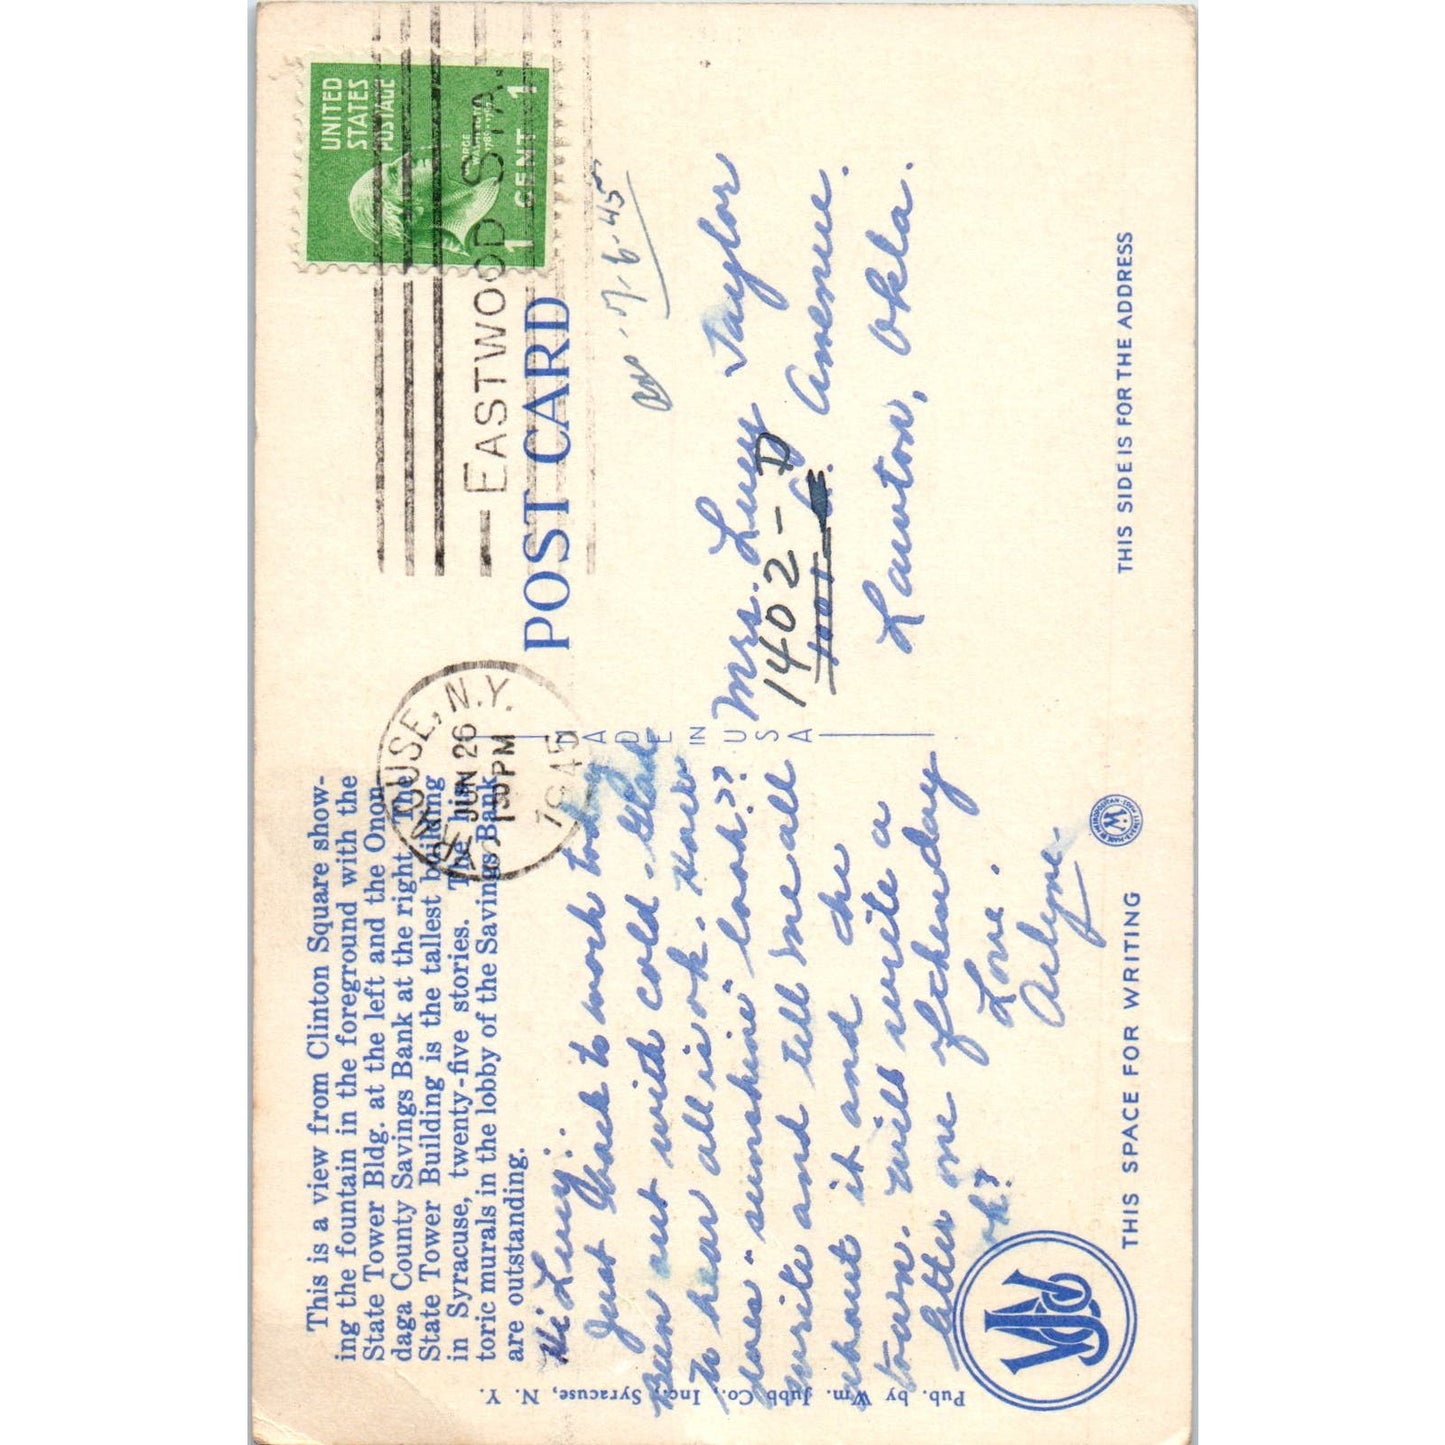 This is a view from Clinton Square show-
ing the fountain in the foreground with the
State Tower Bldg. at the left and the Onon-
daga County Savings Bank at the right. The
State Tower Building is the tallest building
in Syracuse, twenty-five stories. The his-
toric murals in the lobby of the Savings Bank
are outstanding.
Hi Lucy:
Just back to work today
Been out with cold. Glad
to hear all is ok. How
does "sunshine" look??
write and tell me all
about it and the
town. Will write a
letter one of these days
ok?
Love.
Arlyne
Pub. by Wm. Jubb Co., Inc., Syracuse, N. Y.
WJ
THIS SPACE FOR WRITING
METROPOLITAN
W
EVERETT, MASS.
MADE IN USA
SYRACUSE, N.Y.
JUN 26
1 30 PM
1945
EASTWOOD STA.
UNITED
STATES
POSTAGE
GEORGE
WASHINGTON
1789-1797
1 CENT 1
POST CARD
7-6-45
Mrs. Lucy Taylor
1402-D
Avenue.
Lawton, Okla.
THIS SIDE IS FOR THE ADDRESS